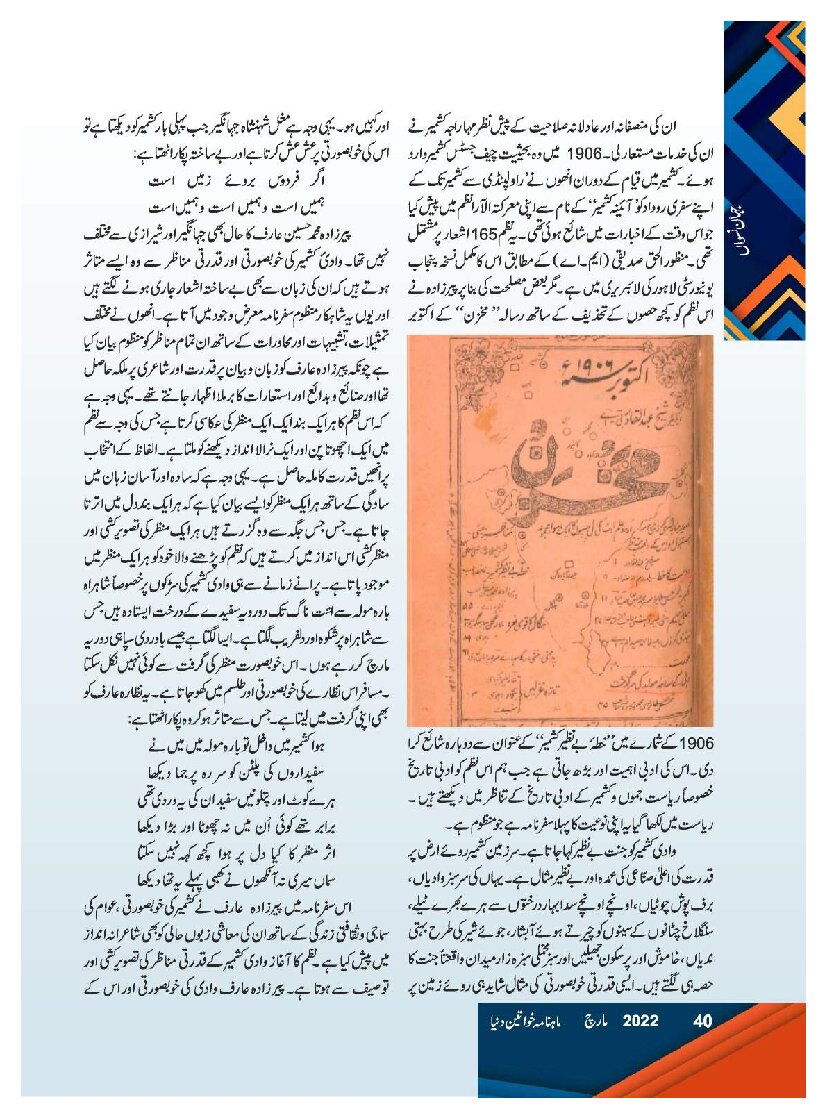 جہان نسواں
ان کی منصفانہ اور عادلانہ صلاحیت کے پیش نظر مہاراجہ کشمیر نے
ان کی خدمات مستعار لی۔ 1906 میں وہ بحیثیت چیف جسٹس کشمیر وارد
ہوئے۔ کشمیر میں قیام کے دوران انھوں نے راولپنڈی سے کشمیر تک کے
اپنے سفری روداد کو ’آئینۂ کشمیر‘‘ کے نام سے اپنی معرکتہ الآرا نظم میں پیش کیا
جو اس وقت کے اخبارات میں شائع ہوئی تھی۔ یہ نظم 165 اشعار پر مشتمل
تھی۔ منظور الحق صدیقی (ایم۔اے) کے مطابق اس کا مکمل نسخہ پنجاب
یونیورسٹی لاہور کی لائبریری میں ہے۔ مگر بعض مصلحت کی بنا پر پیرزادہ نے
اس نظم کو کچھ حصوں کے تخدیف کے ساتھ رسالہ ’’مخزن‘‘ کے اکتوبر
اکتوبر سنہ ۱۹۰۶ء
شیخ عبدالقادر
مخزن
1906 کے شمارے میں ’’خطۂ بے نظیر کشمیر‘‘ کے عنوان سے دوبارہ شائع کرا
دی۔ اس کی ادبی اہمیت اور بڑھ جاتی ہے جب ہم اس نظم کو ادبی تاریخ
خصوصاً ریاست جموں و کشمیر کے ادبی تاریخ کے تناظر میں دیکھتے ہیں ۔
ریاست میں لکھا گیا یہ اپنی نوعیت کا پہلا سفرنامہ ہے جو منظوم ہے۔
وادی کشمیر کو جنت بے نظیر کہا جاتا ہے۔ سرزمین کشمیر روئے ارض پر
قدرت کی اعلیٰ صناعی کی عمدہ اور بے نظیر مثال ہے۔ یہاں کی سرسبز وادیاں،
برف پوش چوٹیاں، اونچے اونچے سدا بہار درختوں سے ہرے بھرے ٹیلے،
سنگلاخ چٹانوں کے سینوں کو چیرتے ہوئے آبشار، جوئے شیر کی طرح بہتی
ندیاں، خاموش اور پرسکون جھیلیں اور سبز مخملی سبزہ زار میدان واقعتاً جنت کا
حصہ ہی لگتے ہیں۔ ایسی قدرتی خوبصورتی کی مثال شاید ہی روئے زمین پر
اور کہیں ہو۔ یہی وجہ ہے مغل شہنشاہ جہانگیر جب پہلی بار کشمیر کو دیکھتا ہے تو
اس کی خوبصورتی پر عش عش کرتا ہے اور بے ساختہ پکار اٹھتا ہے:
اگر فردوس بروئے زمیں است
ہمیں است وہمیں است وہمیں است
پیرزادہ محمد حسین عارف کا حال بھی جہانگیر اور شیرازی سے مختلف
نہیں تھا۔ وادیٔ کشمیر کی خوبصورتی اور قدرتی مناظر سے وہ ایسے متاثر
ہوتے ہیں کہ ان کی زبان سے بھی بے ساختہ اشعار جاری ہونے لگتے ہیں
اور یوں یہ شاہکار منظوم سفرنامہ معرض وجود میں آتا ہے۔ انھوں نے مختلف
تمثیلات، تشبیہات اور محاورات کے ساتھ ان تمام مناظر کو منظوم بیان کیا
ہے چونکہ پیرزادہ عارف کو زبان و بیان پر قدرت اور شاعری پر ملکہ حاصل
تھا اور صنائع و بدائع اور استعارات کا برملا اظہار جانتے تھے۔ یہی وجہ ہے
کہ اس نظم کا ہر ایک بند ایک ایک منظر کی عکاسی کرتا ہے جس کی وجہ سے نظم
میں ایک اچھوتا پن اور ایک نرالا انداز دیکھنے کو ملتا ہے۔ الفاظ کے انتخاب
پر انھیں قدرت کاملہ حاصل ہے۔ یہی وجہ ہے کہ سادہ اور آسان زبان میں
سادگی کے ساتھ ہر ایک منظر کو ایسے بیان کیا ہے کہ ہر ایک بند دل میں اترتا
جاتا ہے۔ جس جس جگہ سے وہ گزرتے ہیں ہر ایک منظر کی تصویر کشی اور
منظر کشی اس انداز میں کرتے ہیں کہ نظم کو پڑھنے والا خود کو ہر ایک منظر میں
موجود پاتا ہے۔ پرانے زمانے سے ہی وادی کشمیر کی سڑکوں پر خصوصاً شاہراہ
بارہ مولہ سے اننت ناگ تک دو رویہ سفیدے کے درخت ایستادہ ہیں جس
سے شاہراہ پرشکوہ اور دلفریب لگتا ہے۔ ایسا لگتا ہے جیسے باوردی سپاہی دو رویہ
مارچ کر رہے ہوں ۔ اس خوبصورت منظر کی گرفت سے کوئی نہیں نکل سکتا
۔ مسافر اس نظارے کی خوبصورتی اور طلسم میں کھو جاتا ہے۔ یہ نظارہ عارف کو
بھی اپنی گرفت میں لیتا ہے۔ جس سے متاثر ہو کر وہ پکار اٹھتا ہے:
ہوا کشمیر میں داخل تو بارہ مولہ میں میں نے
سفیداروں کی پلٹن کو سر رہ پر جما دیکھا
ہرے کوٹ اور پتلونیں سفید ان کی یہ وردی تھی
برابر تھے کوئی اُن میں نہ چھوٹا اور بڑا دیکھا
اثر منظر کا کیا دل پر ہوا کچھ کہہ نہیں سکتا
سماں میری نہ آنکھوں نے کبھی پہلے یہ تھا دیکھا
اس سفرنامہ میں پیرزادہ عارف نے کشمیر کی خوبصورتی، عوام کی
سماجی و ثقافتی زندگی کے ساتھ ان کی معاشی زبوں حالی کو بھی شاعرانہ انداز
میں پیش کیا ہے۔ نظم کا آغاز وادی کشمیر کے قدرتی مناظر کی تصویر کشی اور
توصیف سے ہوتا ہے۔ پیرزادہ عارف وادی کی خوبصورتی اور اس کے
40 2022 مارچ ماہنامہ خواتین دنیا